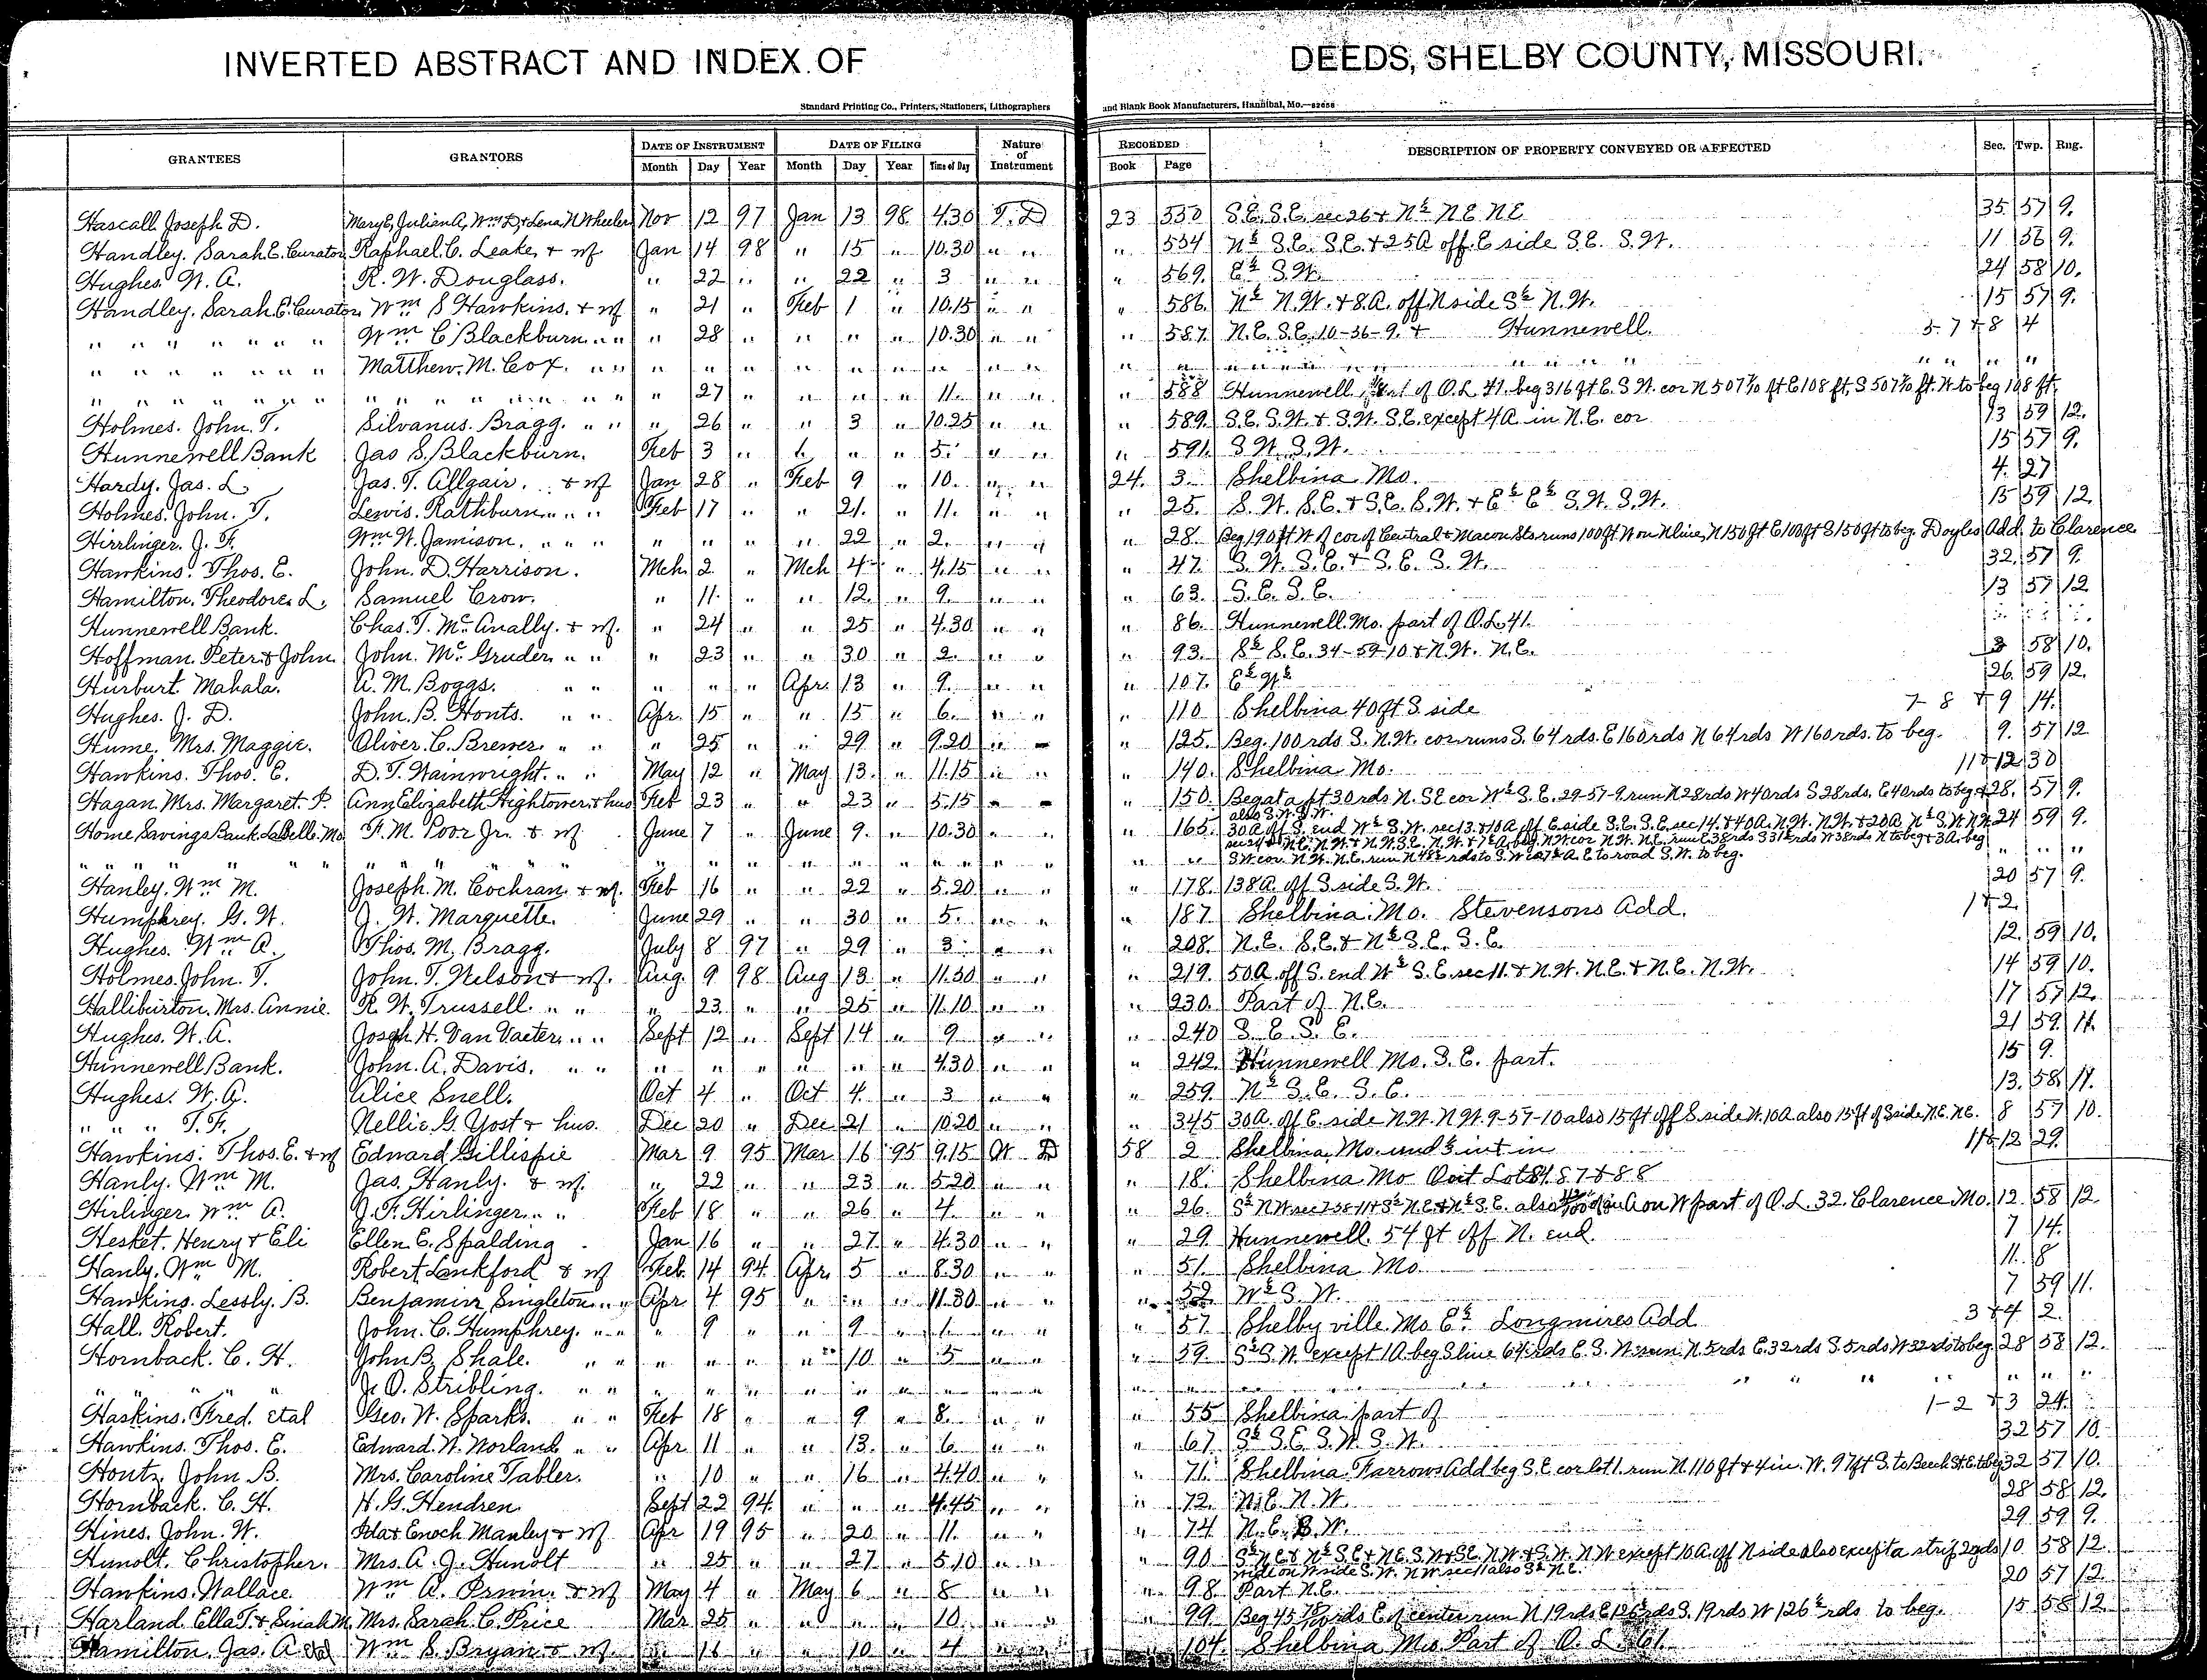 INVERTED ABSTRACT AND INDEX OF DEEDS, SHELBY COUNTY, MISSOURI.
Standard Printing Co., Printers, Stationers, Lithographers and Blank Book Manufacturers, Hannibal, Mo.
GRANTEES GRANTORS DATE OF INSTRUMENT DATE OF FILING Nature of Instrument RECORDED DESCRIPTION OF PROPERTY CONVEYED OR AFFECTED Sec. Twp. Rng.
Month Day Year Month Day Year Time of Day Book Page
Hascall Joseph D. Mary E, Julian A, Wm D, & Lena N Wheeler Nov 12 97 Jan 13 98 4.30 T. D 23 550 S.E. S.E. sec 26 & N½ N E N E 35 57 9.
Handley. Sarah. E. Curator Raphael. C. Leake, & wf Jan 14 98 " 15 " 10.30 " " " 554 N½ S.E. S.E. & 25A off E side S.E. S.W. 11 56 9.
Hughes W. A. R. W. Douglass. " 22 " " 22 " 3 " " " 569. E½ S.W. 24 58 10.
Handley. Sarah. E. Curator Wm S Hawkins. & wf " 21 " Feb 1 " 10.15 " " " 586. N½ N.W. & 8A. off N side S½ N.W. 15 57 9.
" " " " " " " Wm C Blackburn " " " 28 " " " " 10.30 " " " 587. N.E. S.E. 10-56-9. & Hunnewell. 5-7 & 8 4
" " " " " " " Matthew. M. Cox. " " " " " " " " " " " " " " " " " " " " " "
" " " " " " " " " " " " " " " 27 " " " " 11. " " " 588 Hunnewell of O.L. 41. beg 316 ft E. S.W. cor N 507 7/10 ft E 108 ft, S 507 7/10 ft. W to beg 108 ft.
Holmes. John. T. Silvanus. Bragg. " " " 26 " " 3 " 10.25 " " " 589. S.E. S.W. & S.W. S.E. except 4A in N.E. cor 13 59 12.
Hunnewell Bank Jas S. Blackburn. Feb 3 " " " 5. " " " 591. S W. S.W. 15 57 9.
Hardy. Jas. L. Jas. T. Allgair. & wf Jan 28 " Feb 9 " 10. " " 24. 3. Shelbina Mo. 4. 27
Holmes. John. T. Lewis. Rathburn " " Feb 17 " " 21. " 11. " " " 25. S. W. S.E. & S.E. S.W. & E½ E½ S.W. S.W. 13 59 12.
Hirrlinger. J. F. Wm W. Jamison. " " " " " " " 22 " 2. " " " 28. Beg 190 ft W of cor of Central & Macon Sts runs 100 ft W on N line, N 150 ft E 100 ft S 150 ft to beg. Doyles Add. to Clarence
Hawkins. Thos. E. John. D. Harrison. Mch. 2 " Mch 4 " 4.15 " " " 47. S. W. S.E. & S.E. S. W. 32. 57 9.
Hamilton. Theodore. L. Samuel Crow. " 11. " " 12. " 9. " " " 63. S. E. S. E. 13 57 12
Hunnewell Bank. Chas. T. McAnally. & wf. " 24 " " 25 " 4.30 " " " 86. Hunnewell. Mo. part of O.L. 41.
Hoffman. Peter & John. John. McGruder. " " " 23 " " 30 " 2. " " " 93. S½ S.E. 34-59-10 & N.W. N.E. 3 58 10.
Hurburt. Mahala. A. M. Boggs. " " " " " Apr. 13 " 9. " " " 107. E½ W½ 26. 59 12.
Hughes. J. D. John. B. Honts. " " Apr. 15 " " 15 " 6. " " " 110 Shelbina 40 ft S. side 7- 8 & 9 14.
Hume. Mrs. Maggie. Oliver. C. Brewer. " " " 25 " " 29 " 9.20 " " " 125. Beg. 100 rds S. N.W. cor runs S. 64 rds. E 160 rds N 64 rds W 160 rds. to beg. 9. 57 12
Hawkins. Thos. E. D. T. Wainwright. " " May 12 " May 13. " 11.15 " " " 140. Shelbina Mo. 11 & 12 30
Hagan. Mrs. Margaret. P. Ann Elizabeth Hightower. & hus Feb 23 " " 23 " 5.15 " " " 150. Beg at a pt 30 rds N. SE cor W½ S.E. 29-57-9. run N 28 rds W 40 rds S 28 rds. E 40 rds to beg & 28. 57 9.
also S.W. S.W.
Home Savings Bank LaBelle. Mo. F. M. Poor Jr. & wf June 7 " June 9. " 10.30 " " " 165. 30A off S. end W½ S.W. sec 13. & 10A off E side S.E. S.E. sec 14. & 40A. N.W. N.W. & 20A N½ S.W. N.W. 24 59 9.
" " " " " " " " " " " " " " " " " " " " " S.W. cor N.W. N.E. run N rds to S.W. E to road S.W. to beg. " " "
Hanley. Wm M. Joseph. M. Cochran & wf. Feb 16 " " 22 " 5.20 " " " 178. 138A. off S. side S.W. 20 57 9.
Humphrey. G. W. J. W. Marquette. June 29 " " 30 " 5. " " " 187. Shelbina. Mo. Stevensons Add. 1 & 2.
Hughes. Wm A. Thos. M. Bragg. July 8 97 " 29 " 3 " " " 208. N.E. S.E. & N½ S.E. S.E. 12. 59 10.
Holmes. John. T. John. T. Nelson & wf. Aug. 9 98 Aug 13 " 11.30 " " " 219. 50A off S. end W½ S.E. sec 11. & N.W. N.E. & N.E. N.W. 14 59 10.
Halliburton. Mrs. Annie. R. W. Trussell. " " " 23. " " 25 " 11.10 " " " 230. Part of N.E. 17 57 12.
Hughes. W. A. Joseph H. Van Vacter " " Sept 12 " Sept 14 " 9 " " " 240 S. E. S. E. 21 59. 11.
Hunnewell Bank. John. A. Davis. " " " " " " " " 4.30 " " " 242. Hunnewell Mo. S. E. part. 15 9.
Hughes. W. A. Alice Snell. Oct 4 " Oct 4. " 3 " " " 259. N½ S.E. S.E. 13. 58. 11.
" " " T. F. Nellie. G. Yost & hus. Dec 20 " Dec 21 " 10.20 " " " 345 30A. off E. side N.W. N.W. 9-57-10 also 15 ft off S side W. 10A also 15 ft of S side N.E. N.E. 8 57 10.
Hawkins. Thos. E. & wf Edward Gillispie Mar 9 95 Mar. 16 95 9.15 W D 58 2 Shelbina Mo. und ½ int in 11 & 12 29.
Hanly. Wm M. Jas. Hanly. & wf. " 22 " " 23 " 5.20 " " " 18. Shelbina Mo Out Lots 81 87 & 88
Hirlinger Wm A. J. F. Hirlinger " " Feb 18 " " 26 " 4. " " " 26. on W part of O. L. 32. Clarence Mo. 12. 58 12
Hesket. Henry & Eli Ellen. E. Spalding Jan 16 " " 27. " 4.30 " " " 29. Hunnewell. 54 ft off N. end. 7 14.
Hanly. Wm M. Robert Lankford & wf Feb. 14 94. Apr. 5 " 8.30 " " " 51. Shelbina Mo. 11. 8
Hawkins. Lessly. B. Benjamin Singleton " " Apr 4 95 " " " 11.30 " " " 52. W½ S. W. 7 59 11.
Hall. Robert. John. C. Humphrey. " " " 9 " " 9 " 1. " " " 57. Shelbyville. Mo. E½. Longmires Add 3 & 4 2.
Hornback. C. H. John B. Shale. " " " " " " 10 " 5 " " " 59. S½ S.W. except 1A. beg S line 64 rds E. S.W. run N. 5 rds E. 32 rds S. 5 rds W 32 rds to beg. 28 58 12.
" " " " " J. O. Stribling. " " " " " " " " " " " " " " " " " " " "
Haskins. Fred. etal Geo. W. Sparks. " " Feb 18 " " 9 " 8. " " " 55 Shelbina part of 1-2 & 3 24.
Hawkins. Thos. E. Edward. W. Worland " " Apr 11 " " 13. " 6. " " " 67. S½ S.E. S.W. S.W. 32 57 10.
Houtz. John B. Mrs. Caroline Tabler. " 10 " " 16 " 4.40 " " " 71. Shelbina Farrows Add beg S.E. cor lot 1. run N. 110 ft & 4 in. W. 97 ft S. to Beech St. E. to beg 32 57 10.
Hornback. C. H. H. G. Hendren. Sept 22 94. " " " 4.45 " " " 72. N.E. N.W. 28 58 12.
Hines. John. W. Ida & Enoch Manley & wf Apr 19 95 " 20 " 11. " " " 74. N.E. S.W. 29. 59 9.
Hunolt. Christopher. Mrs. A. J. Hunolt " 25 " " 27 " 5.10 " " " 90 S½ N.E. & N½ S.E. & N.E. S.W. & S.E. N.W. & S.W. N.W. except 10A. off N side also except a strip 2 rds 10 58 12
wide on W side S.W. N.W. sec 11 also S½ N.E.
Hawkins. Wallace Wm A. Irwin. & wf May 4 " May 6 " 8 " " " 98. Part N.E. 20 57 12.
Harland. Ella T. & Sinah M. Mrs. Sarah. C. Price Mar. 25 " " " " 10 " " " 99. Beg 45 rds E of center, run N 19 rds E 126 rds S. 19 rds W 126½ rds to beg. 15 58 12
Hamilton. Jas. A. Wm S. Bryan & wf. " 16 " " 10 " 4 " " " 104. Shelbina Mo. Part of O. L. 61.